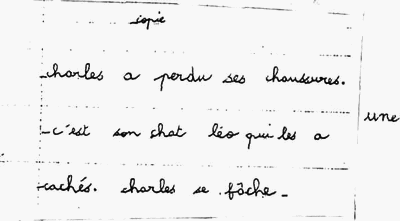 copie
charles a perdu ses chaussures.
c'est son chat léo qui les a
cachés. charles se fâche
une